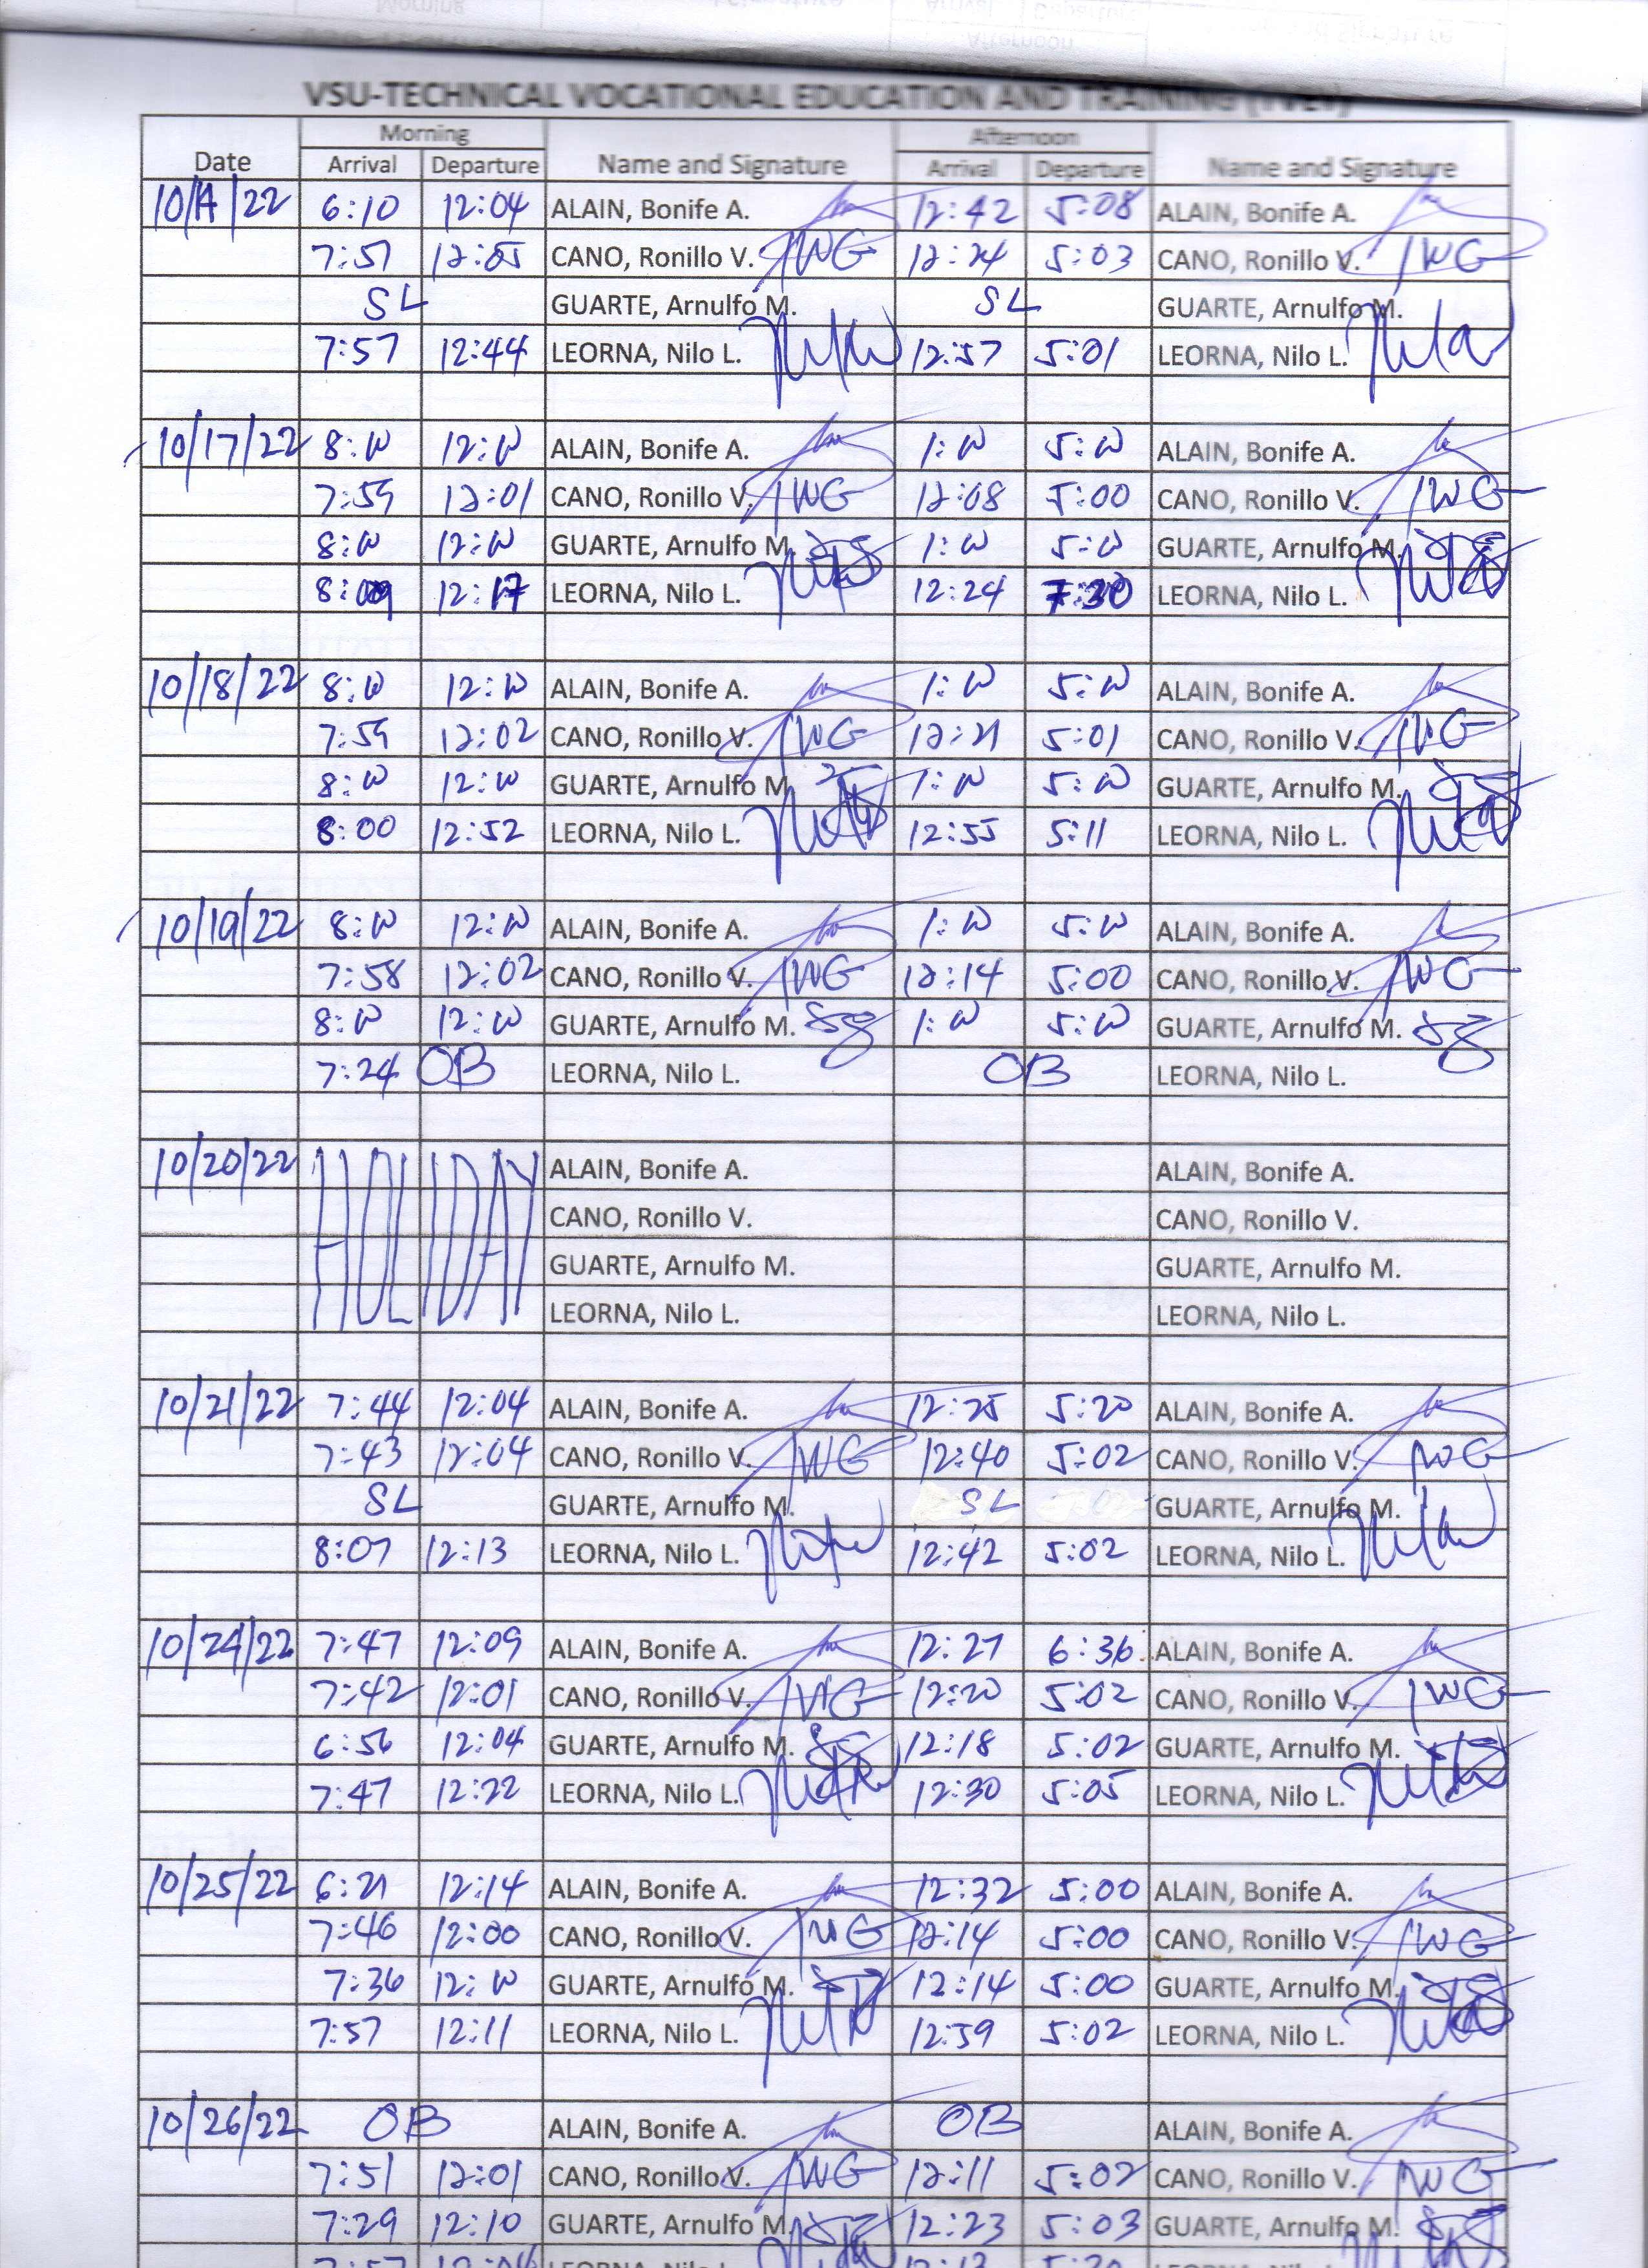 VSU-TECHNICAL VOCATIONAL EDUCATION AND TRAINING (TVET)
Morning Afternoon
Date Arrival Departure Name and Signature Arrival Departure Name and Signature
10/14/22 6:10 12:04 ALAIN, Bonife A. 12:42 5:08 ALAIN, Bonife A.
7:57 12:05 CANO, Ronillo V. 12:24 5:03 CANO, Ronillo V.
SL GUARTE, Arnulfo M. SL GUARTE, Arnulfo M.
7:57 12:44 LEORNA, Nilo L. 12:57 5:01 LEORNA, Nilo L.
10/17/22 8:00 12:00 ALAIN, Bonife A. 1:00 5:00 ALAIN, Bonife A.
7:59 12:01 CANO, Ronillo V. 12:08 5:00 CANO, Ronillo V.
8:00 12:00 GUARTE, Arnulfo M. 1:00 5:00 GUARTE, Arnulfo M.
12:17 LEORNA, Nilo L. 12:24 7:30 LEORNA, Nilo L.
10/18/22 8:00 12:00 ALAIN, Bonife A. 1:00 5:00 ALAIN, Bonife A.
7:59 12:02 CANO, Ronillo V. 12:21 5:01 CANO, Ronillo V.
8:00 12:00 GUARTE, Arnulfo M. 1:00 5:00 GUARTE, Arnulfo M.
8:00 12:52 LEORNA, Nilo L. 12:55 5:11 LEORNA, Nilo L.
10/19/22 8:00 12:00 ALAIN, Bonife A. 1:00 5:00 ALAIN, Bonife A.
7:58 12:02 CANO, Ronillo V. 12:14 5:00 CANO, Ronillo V.
8:00 12:00 GUARTE, Arnulfo M. 1:00 5:00 GUARTE, Arnulfo M.
7:24 OB LEORNA, Nilo L. OB LEORNA, Nilo L.
10/20/22 HOLIDAY ALAIN, Bonife A. ALAIN, Bonife A.
CANO, Ronillo V. CANO, Ronillo V.
GUARTE, Arnulfo M. GUARTE, Arnulfo M.
LEORNA, Nilo L. LEORNA, Nilo L.
10/21/22 7:44 12:04 ALAIN, Bonife A. 12:25 5:20 ALAIN, Bonife A.
7:43 12:04 CANO, Ronillo V. 12:40 5:02 CANO, Ronillo V.
SL GUARTE, Arnulfo M. SL GUARTE, Arnulfo M.
8:07 12:13 LEORNA, Nilo L. 12:42 5:02 LEORNA, Nilo L.
10/24/22 7:47 12:09 ALAIN, Bonife A. 12:27 6:36 ALAIN, Bonife A.
7:42 12:01 CANO, Ronillo V. 12:20 5:02 CANO, Ronillo V.
6:56 12:04 GUARTE, Arnulfo M. 12:18 5:02 GUARTE, Arnulfo M.
7:47 12:22 LEORNA, Nilo L. 12:30 5:05 LEORNA, Nilo L.
10/25/22 6:21 12:14 ALAIN, Bonife A. 12:32 5:00 ALAIN, Bonife A.
7:46 12:00 CANO, Ronillo V. 12:14 5:00 CANO, Ronillo V.
7:36 12:00 GUARTE, Arnulfo M. 12:14 5:00 GUARTE, Arnulfo M.
7:57 12:11 LEORNA, Nilo L. 12:59 5:02 LEORNA, Nilo L.
10/26/22 OB ALAIN, Bonife A. OB ALAIN, Bonife A.
7:51 12:01 CANO, Ronillo V. 12:11 5:02 CANO, Ronillo V.
7:29 12:10 GUARTE, Arnulfo M. 12:23 5:03 GUARTE, Arnulfo M.